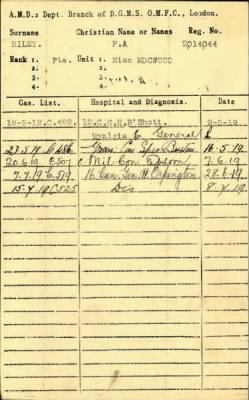 A.M.D.: Dept. Branch of D.G.M.S. O.M.F.C., London.
Surname Christian Name or Names Reg. No.
RILEY. F.A 2014044
Rank: Pte. Unit: Misc MDC#CCC
2. 2.
3. 3.
4. 4.
Cas. List. Hospital and Diagnosis. Date
19-5-19.C.482. 12.C.G.H.B'Shott. 9-5-19
Myalgia General
27.5.19 C486 Trans. Can Spec Buxton 16-5-19
20.6.19 C507 Mil Con Epsom 7.6.19
7.7.19 C519 16 Can. Gen H. Orpington 28.6.19
15.7.19 C525 Dis 8.7.19